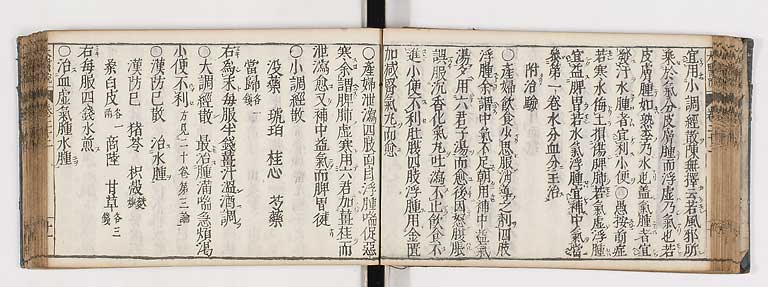 宜用小調經散陳無擇云若風邪所
乘於氣分皮膚腫而浮虛乃氣也若
皮膚腫如熟李乃水也蓋氣腫者宜
發汗水腫者宜利小便○愚按前症
若寒水侮土損傷脾肺若氣虛浮腫
宜益脾胃若水氣浮腫宜補中氣當
參第一卷水分血分主治
附治驗
○產婦飲食少思服消導之劑四肢
浮腫余謂中氣不足朝用補中益氣
湯夕用六君子湯而愈後因怒腹脹
誤服沉香化氣丸吐瀉不止飲食不
進小便不利肚腹四肢浮腫用金匱
加減腎氣丸而愈
○產婦泄瀉四肢面目浮腫喘促惡
寒余謂脾肺虛寒用六君加薑桂而
泄瀉愈又補中益氣而脾胃健
○小調經散
沒藥 琥珀 桂心 芍藥
當歸各一錢
右為末每服半錢薑汁溫酒調
○大調經散 最治腫滿喘急煩渴
小便不利 方見二十卷第三論
○漢防己散 治水腫
漢防己 猪苓 枳殼
桑白皮各一 商陸 甘草各三錢
右每服四錢水煎
○治血虛氣腫水腫